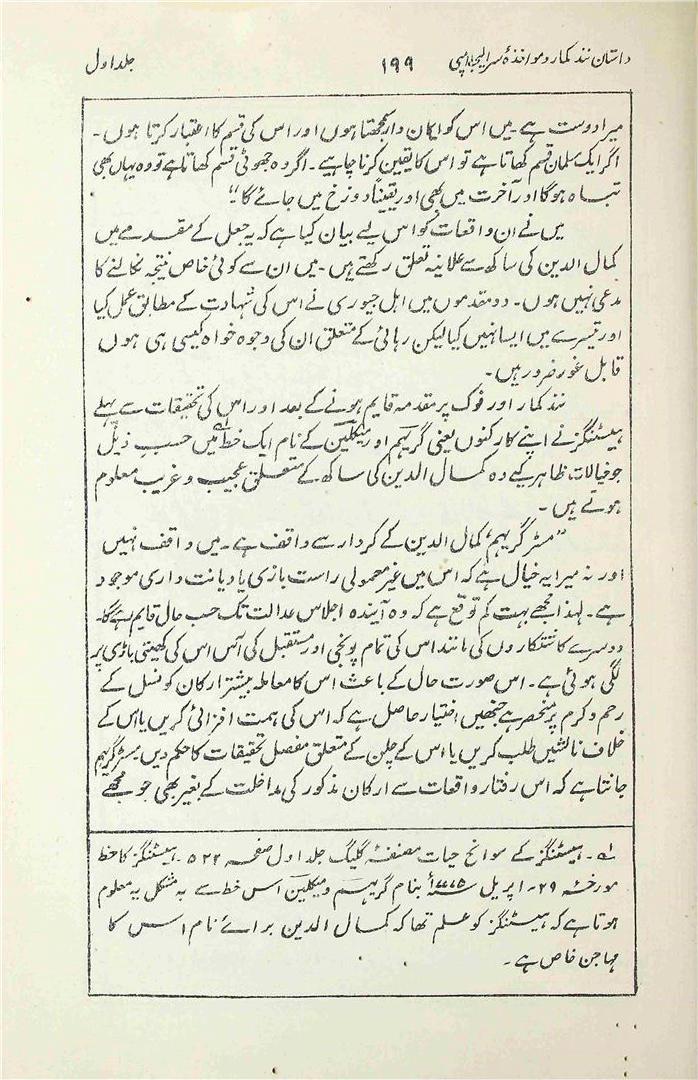 داستان نند کمار و مواخذۂ سر الیجا امپی ۱۹۹ جلد اول
میرا دوست ہے۔ میں اس کو ایمان دار سمجھتا ہوں اور اس کی قسم کا اعتبار کرتا ہوں۔
اگر ایک مسلمان قسم کھاتا ہے تو اس کا یقین کرنا چاہیے۔ اگر وہ جھوٹی قسم کھاتا ہے تو وہ یہاں بھی
تباہ ہوگا اور آخرت میں بھی اور یقیناً دوزخ میں جائے گا۔"
میں نے ان واقعات کو اس لیے بیان کیا ہے کہ یہ جعل کے مقدمے میں
کمال الدین کی ساکھ سے علانیہ تعلق رکھتے ہیں۔ میں ان سے کوئی خاص نتیجہ نکالنے کا
مدعی نہیں ہوں۔ دو مقدموں میں اہل جیوری نے اس کی شہادت کے مطابق عمل کیا
اور تیسرے میں ایسا نہیں کیا لیکن رہائی کے متعلق ان کی وجوہ خواہ کیسی ہی ہوں
قابل غور ضرور ہیں۔
نند کمار اور فوک پر مقدمہ قایم ہونے کے بعد اور اس کی تحقیقات سے پہلے
ہیسٹنگز نے اپنے کارکنوں یعنی گریہم اور میکلین کے نام ایک خط میں حسب ذیل
جو خیالات ظاہر کیے وہ کمال الدین کی ساکھ کے متعلق عجیب و غریب معلوم
ہوتے ہیں۔
"مسٹر گریہم، کمال الدین کے کردار سے واقف ہے۔ میں واقف نہیں
اور نہ میرا یہ خیال ہے کہ اس میں غیر معمولی راست بازی یا دیانت داری موجود
ہے۔ لہذا مجھے بہت کم توقع ہے کہ وہ آیندہ اجلاس عدالت تک حسب حال قایم رہے گا۔
دوسرے کاشتکاروں کی مانند اس کی تمام پونجی اور مستقبل کی آس اس کی کھیتی باڑی پر
لگی ہوئی ہے۔ اس صورت حال کے باعث اس کا معاملہ بیشتر ارکان کونسل کے
رحم و کرم پر منحصر ہے جنھیں اختیار حاصل ہے کہ اس کی ہمت افزائی کریں یا اس کے
خلاف نالشیں طلب کریں یا اس کے چلن کے متعلق مفصل تحقیقات کا حکم دیں۔ مسٹر گریہم
جانتا ہے کہ اس رفتار واقعات سے ارکان مذکور کی مداخلت کے بغیر بھی جو مجھے
لہ۔ ہیسٹنگز کے سوانح حیات مصنفۂ گلیگ جلد اول صفحہ ۵۲۲۔ ہیسٹنگز کا خط
مورخہ ۲۹۔ اپریل ۱۷۷۵ء بنام گریہم و میکلین اس خط سے بہ مشکل یہ معلوم
ہوتا ہے کہ ہیسٹنگز کو علم تھا کہ کمال الدین برائے نام اس کا
مہاجن خاص ہے۔